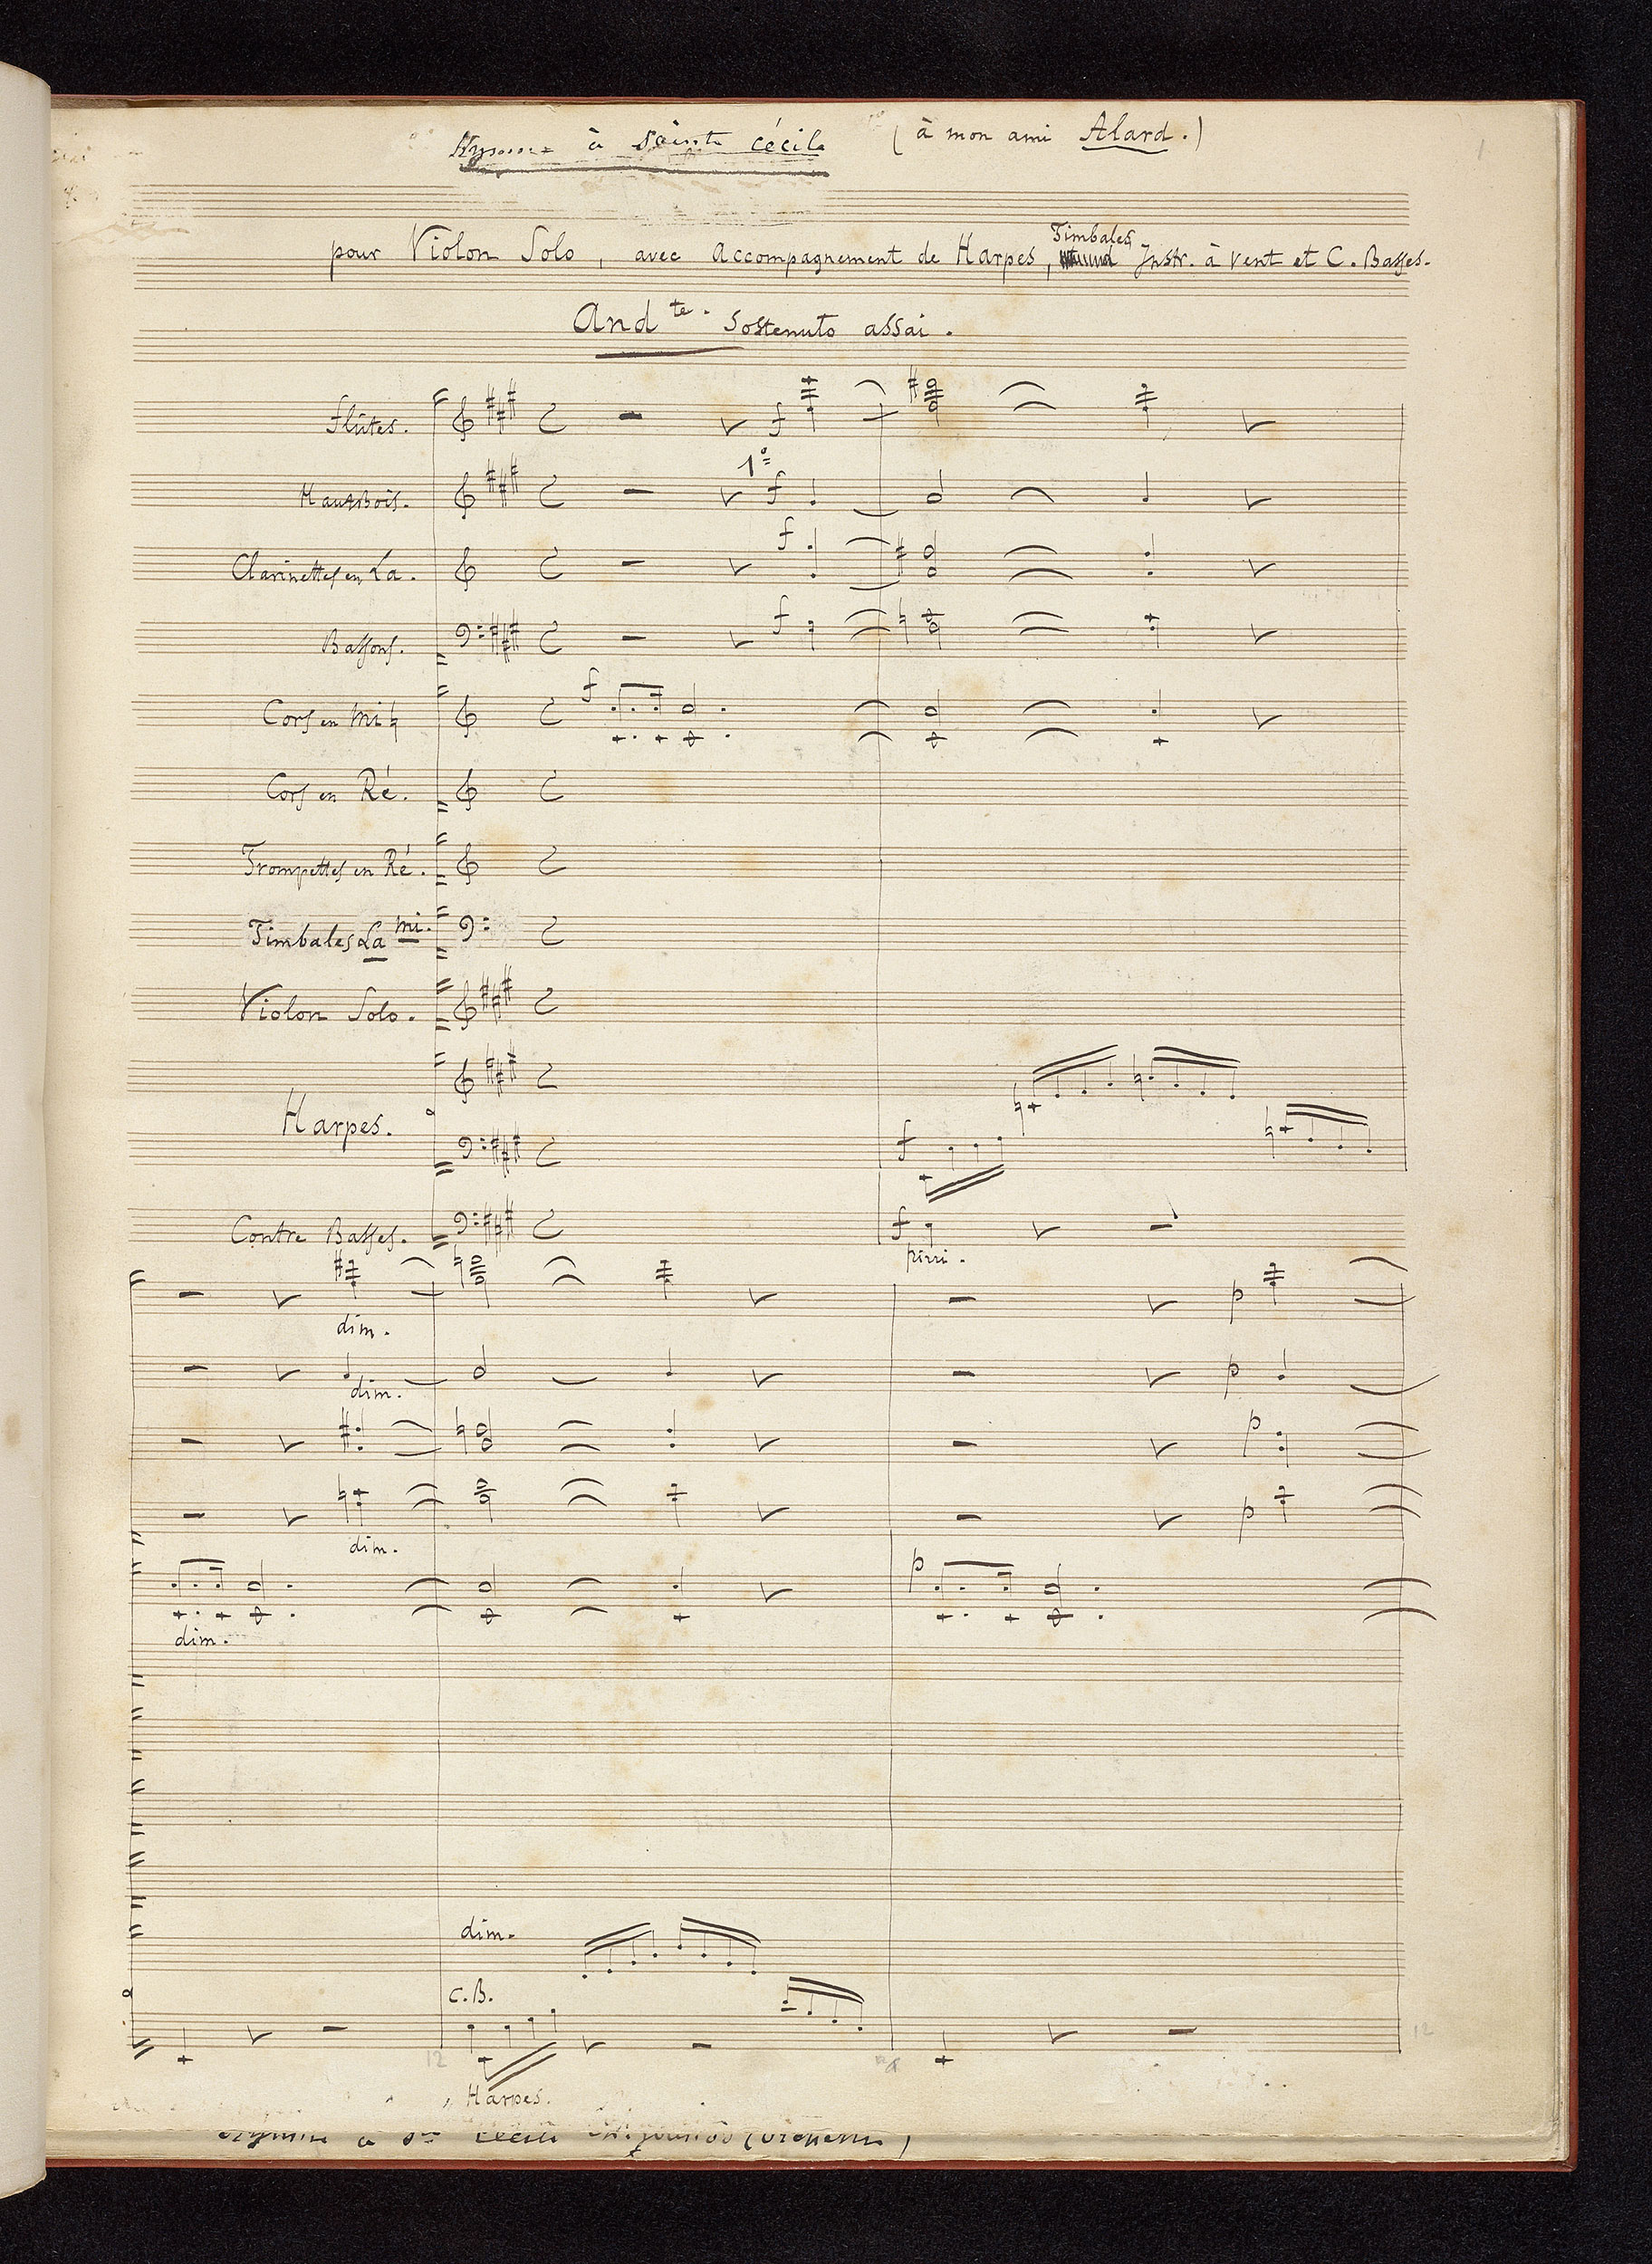 Hymne à Sainte Cécile (à mon ami Alard.)
1
Timbales
pour Violon Solo, avec accompagnement de Harpes, Instr. à vent et C. Basses.
Andte. Sostenuto assai.
flûtes. f
1º
Hautbois. f
f
Clarinettes en La.
f
Bassons.
f
Cors en mi♮
Cors en Ré.
Trompettes en Ré.
Timbales La mi.
Violon Solo.
Harpes. f
Contre Basses. f
pizzi.
p
dim.
p
dim.
p
p
dim.
p
dim.
dim.
C.B.
12
12
Harpes.
Hymne à Ste Cécile Ch. Gounod (Orchestre)